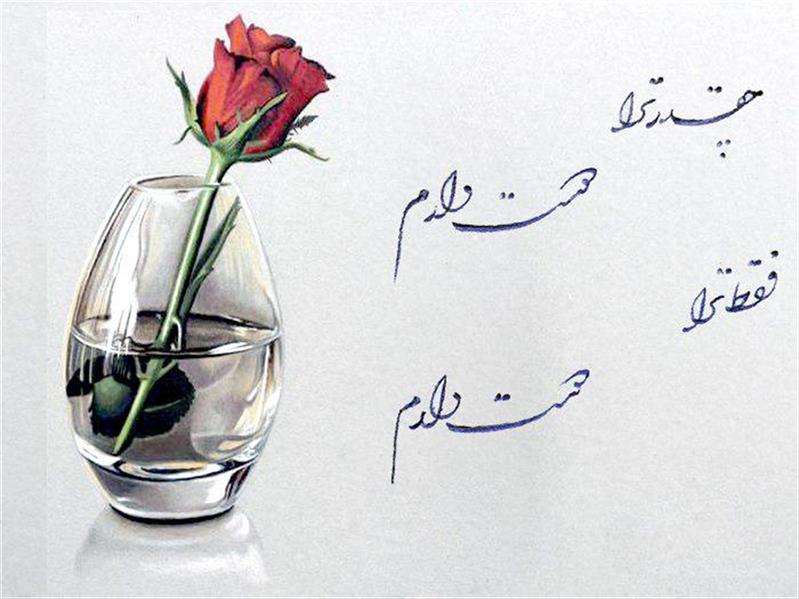 چقدر ترا
دوست دارم
فقط ترا
دوست دارم